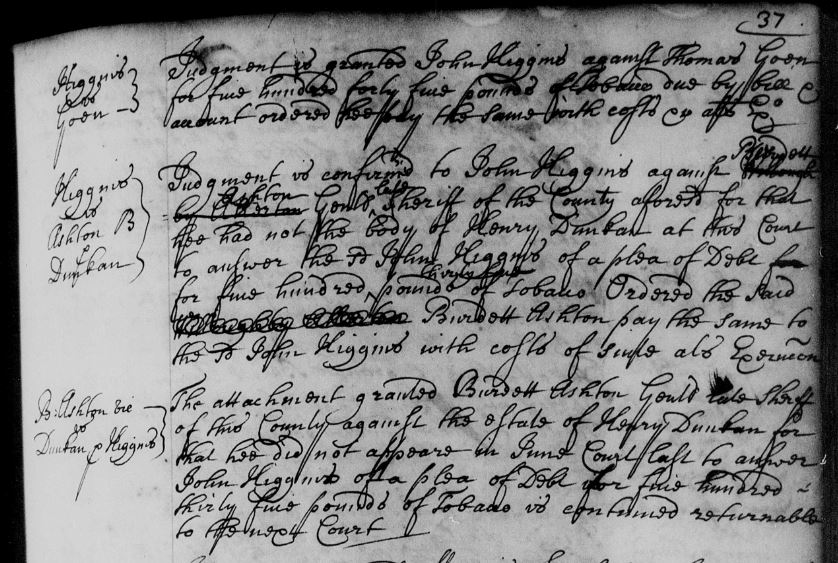 37
Higgins
vs
Goen
Judgment is granted John Higgins against Thomas Goen
for five hundred forty five pounds of Tobacco due by bill &
account ordered hee pay the same with costs als Exo
Higgins
vs
Ashton B
Dunkan
Judgment is confirmed to John Higgins against Burdett
Ashton Gentl late Sheriff of the County aforesd for that
hee had not the body of Henry Dunkan at this Court
to answer the sd John Higgins of a plea of Debt
for five hundred thirty five pounds of Tobacco Ordered the said
Burdett Ashton pay the same to
the sd John Higgins with costs of suite als Execucon
B: Ashton vic
vs
Dunkan p Higgins
The attachment granted Burdett Ashton Gentl late Sheriff
of this County against the estate of Henry Dunkan for
that hee did not appeare in June Court last to answer
John Higgins of a plea of Debt for five hundred
thirty five pounds of Tobacco is continued returnable
to the next Court